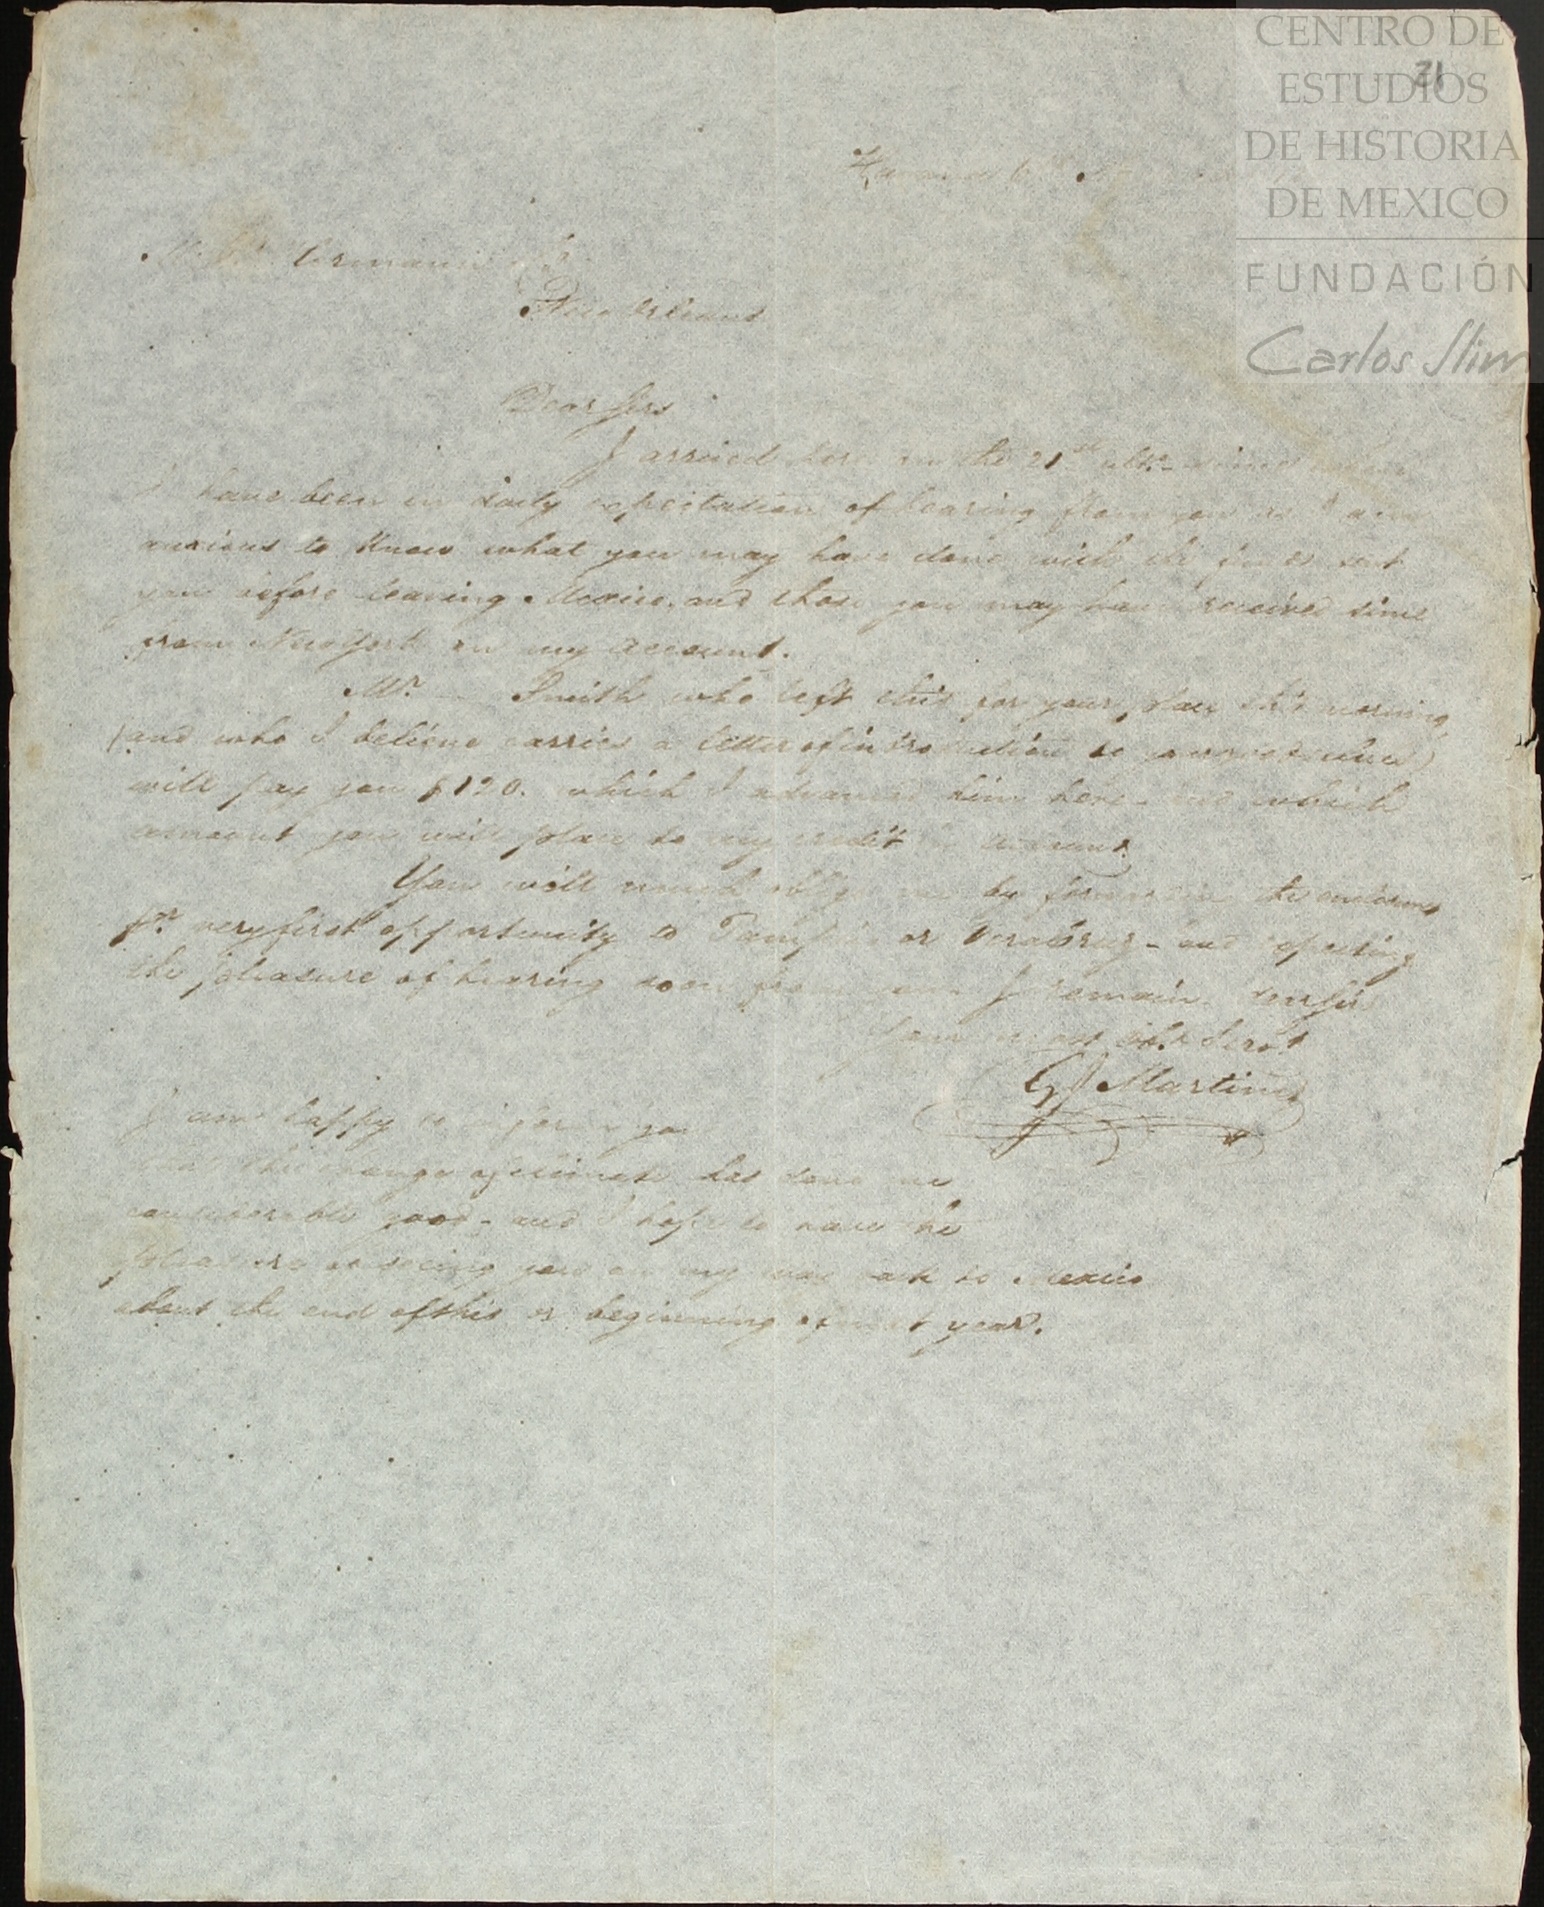 CENTRO DE
ESTUDIOS
DE HISTORIA
DE MEXICO
FUNDACIÓN
Carlos Slim
21
Havana 6
New Orleans
Dear Sirs
I arrived here on the 21st ulto. since
I have been in daily expectation of hearing from you as I am
anxious to know what you may have done with the sent
you before leaving Mexico, and those you may have received since
from New York on my account.
Mr. Smith who left this for your place this morning
(and who I believe carries a letter of introduction to
will pay you $120. which I advanced him here - and which
amount you will place to my credit in account.
You will much oblige me by forwarding the enclosed
pr. very first opportunity to Tampico or Veracruz - and expecting
the pleasure of hearing soon from you I remain dear Sirs
Your most Obt. Servt.
Martinez
I am happy to inform you
that the change of climate has done me
considerable good - and I hope to have the
pleasure of seeing you on my way back to Mexico
about the end of this or beginning of next year.